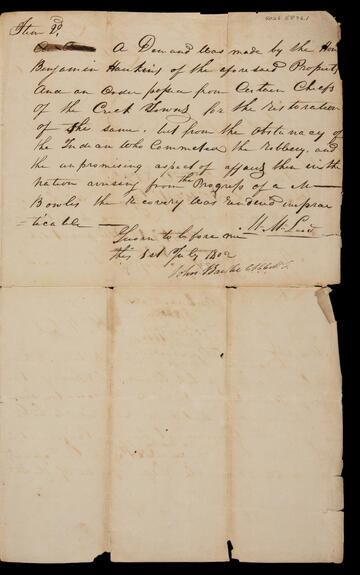 Item 2d
A Demand was made by the Hon
Benjamin Hawkins of the aforesaid Property
And an Order passed from Certain Chiefs
of the Creek Towns for the restoration
of the same. but from the obstinacy of
the Indian who Committed the robbery, and
the unpromising aspect of affairs then in the
nation arising from the Progress of a M
Bowles the recovery was rendered imprac
=ticable
Sworn to before me
this 1st July 1802